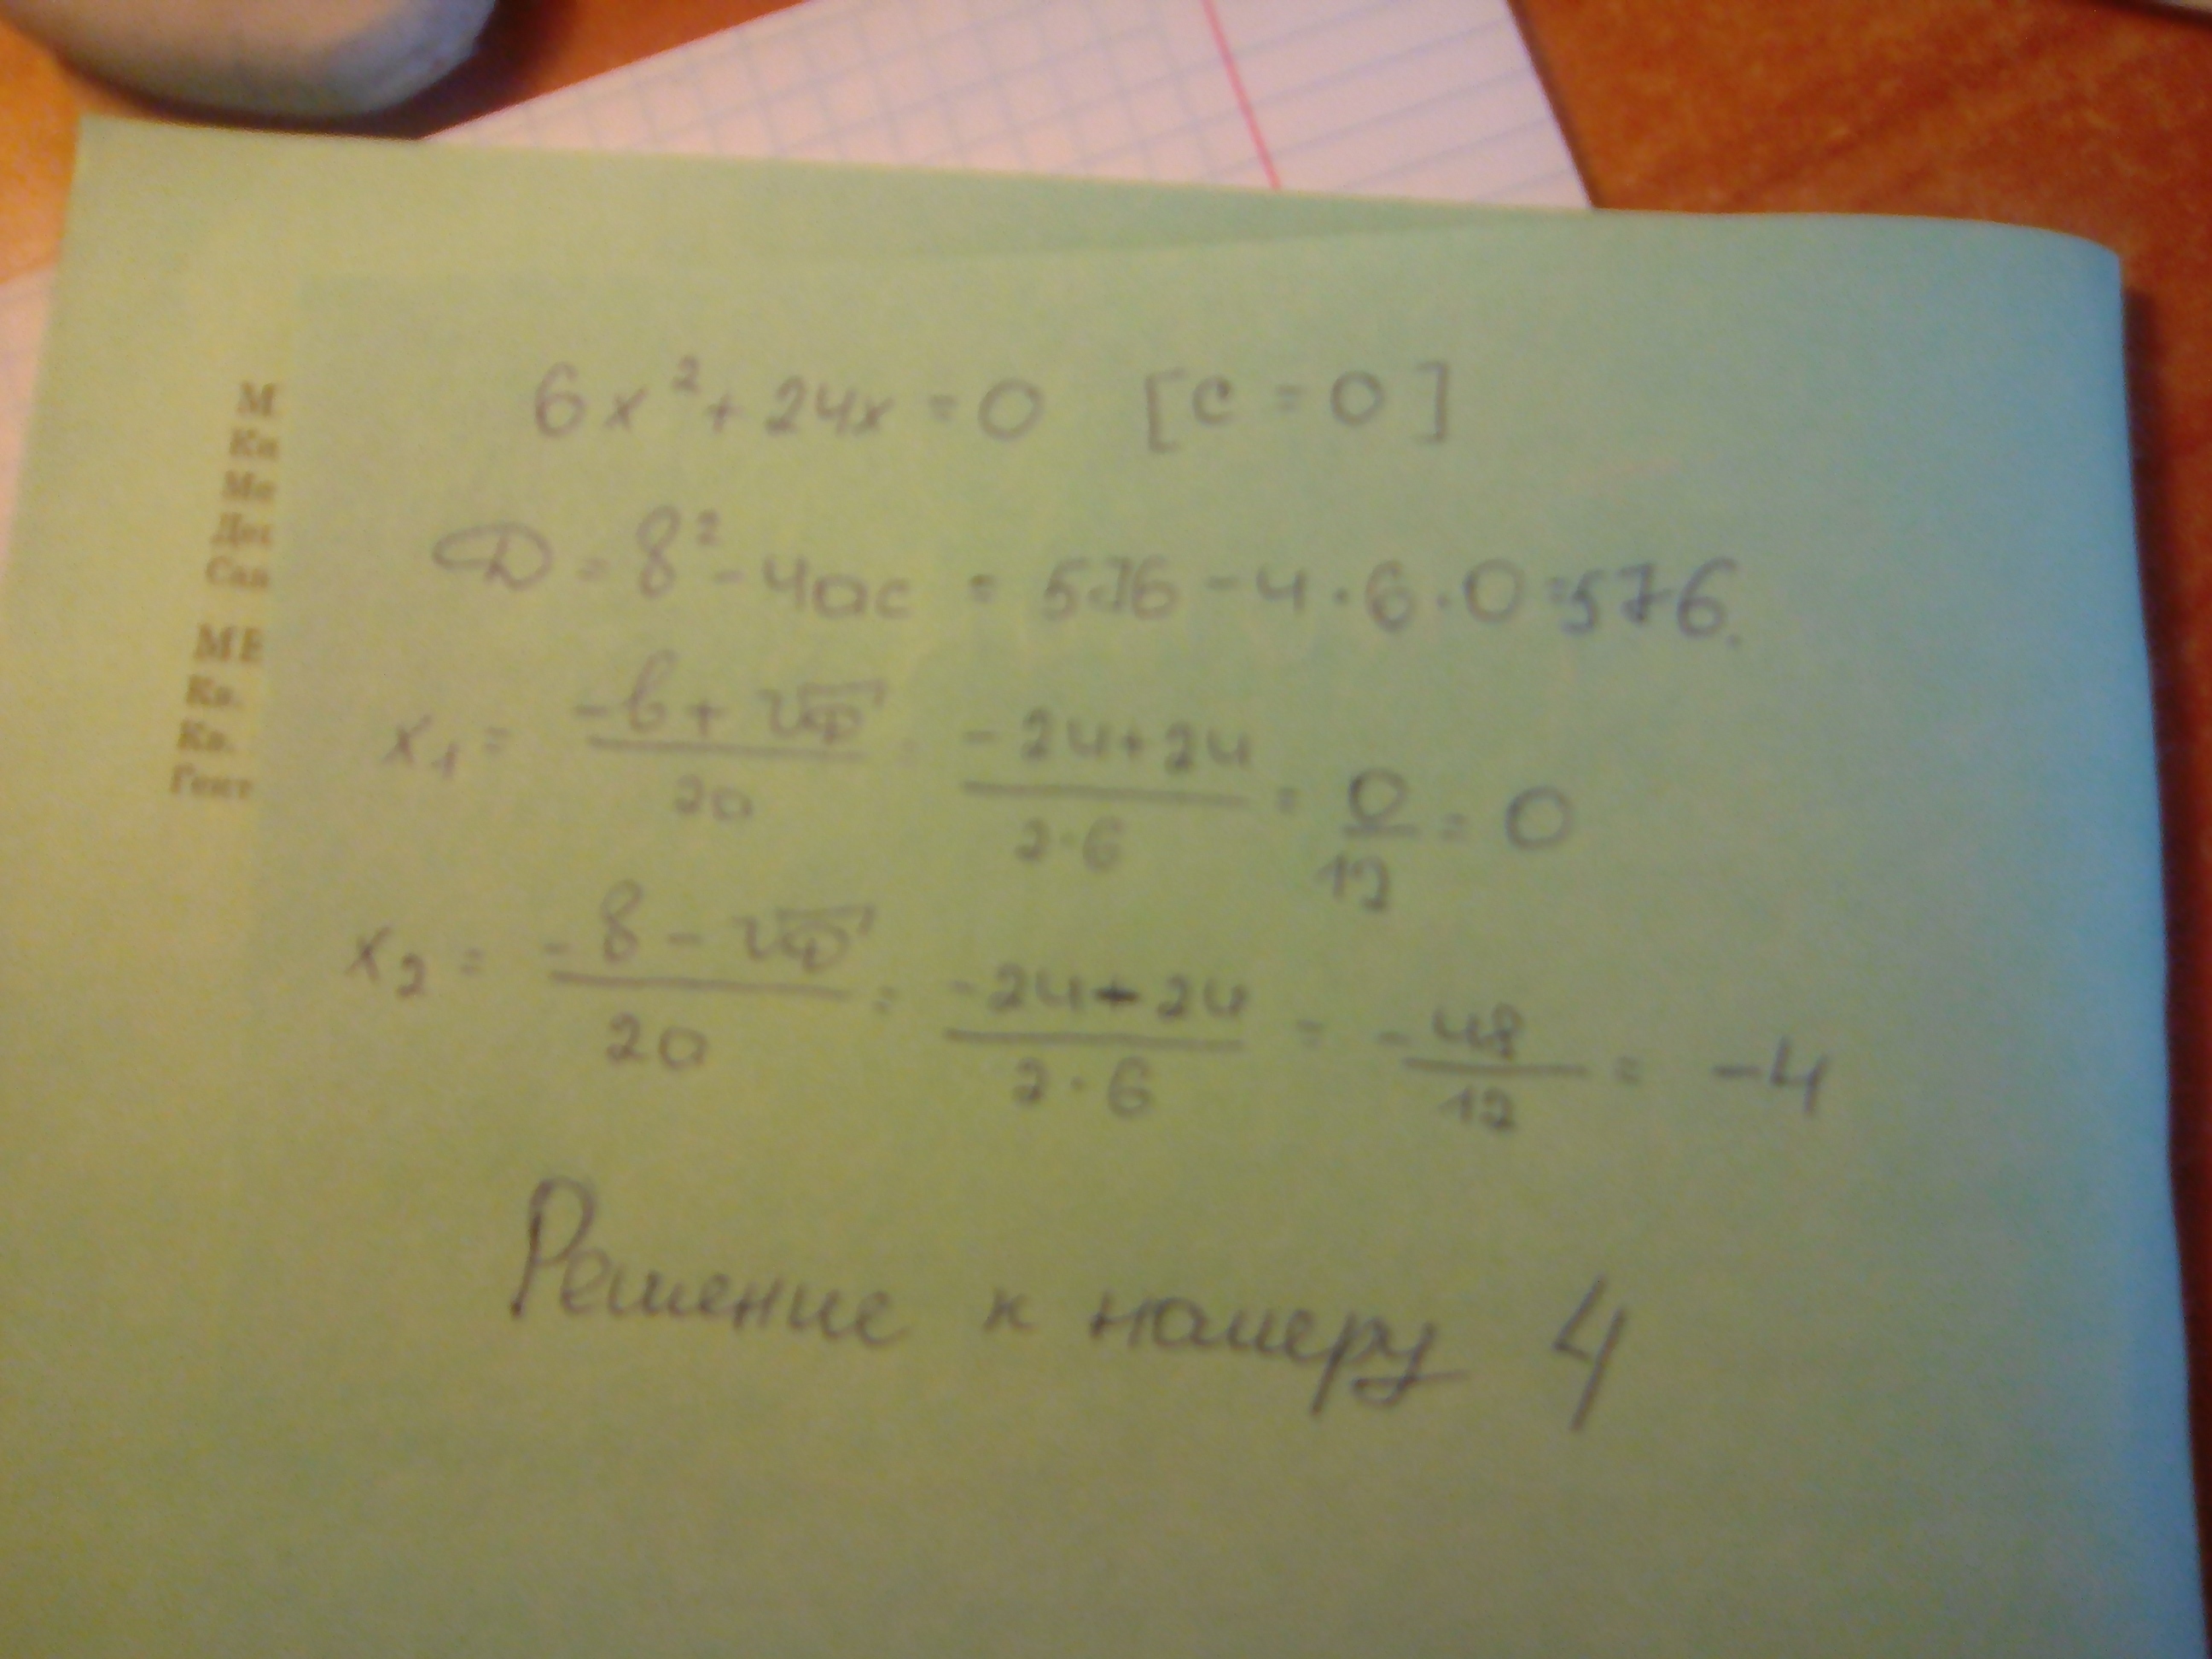 М
Кв
Ме
Дец
Сан
МЕ
Кв.
Кв.
Гект
6x² + 24x = 0 [c = 0]
D = в² - 4ac = 576 - 4 · 6 · 0 = 576.
x₁ = (-в + √D) / 2a = (-24 + 24) / (2 · 6) = 0 / 12 = 0
x₂ = (-в - √D) / 2a = (-24 - 24) / (2 · 6) = -48 / 12 = -4
Решение к номеру 4